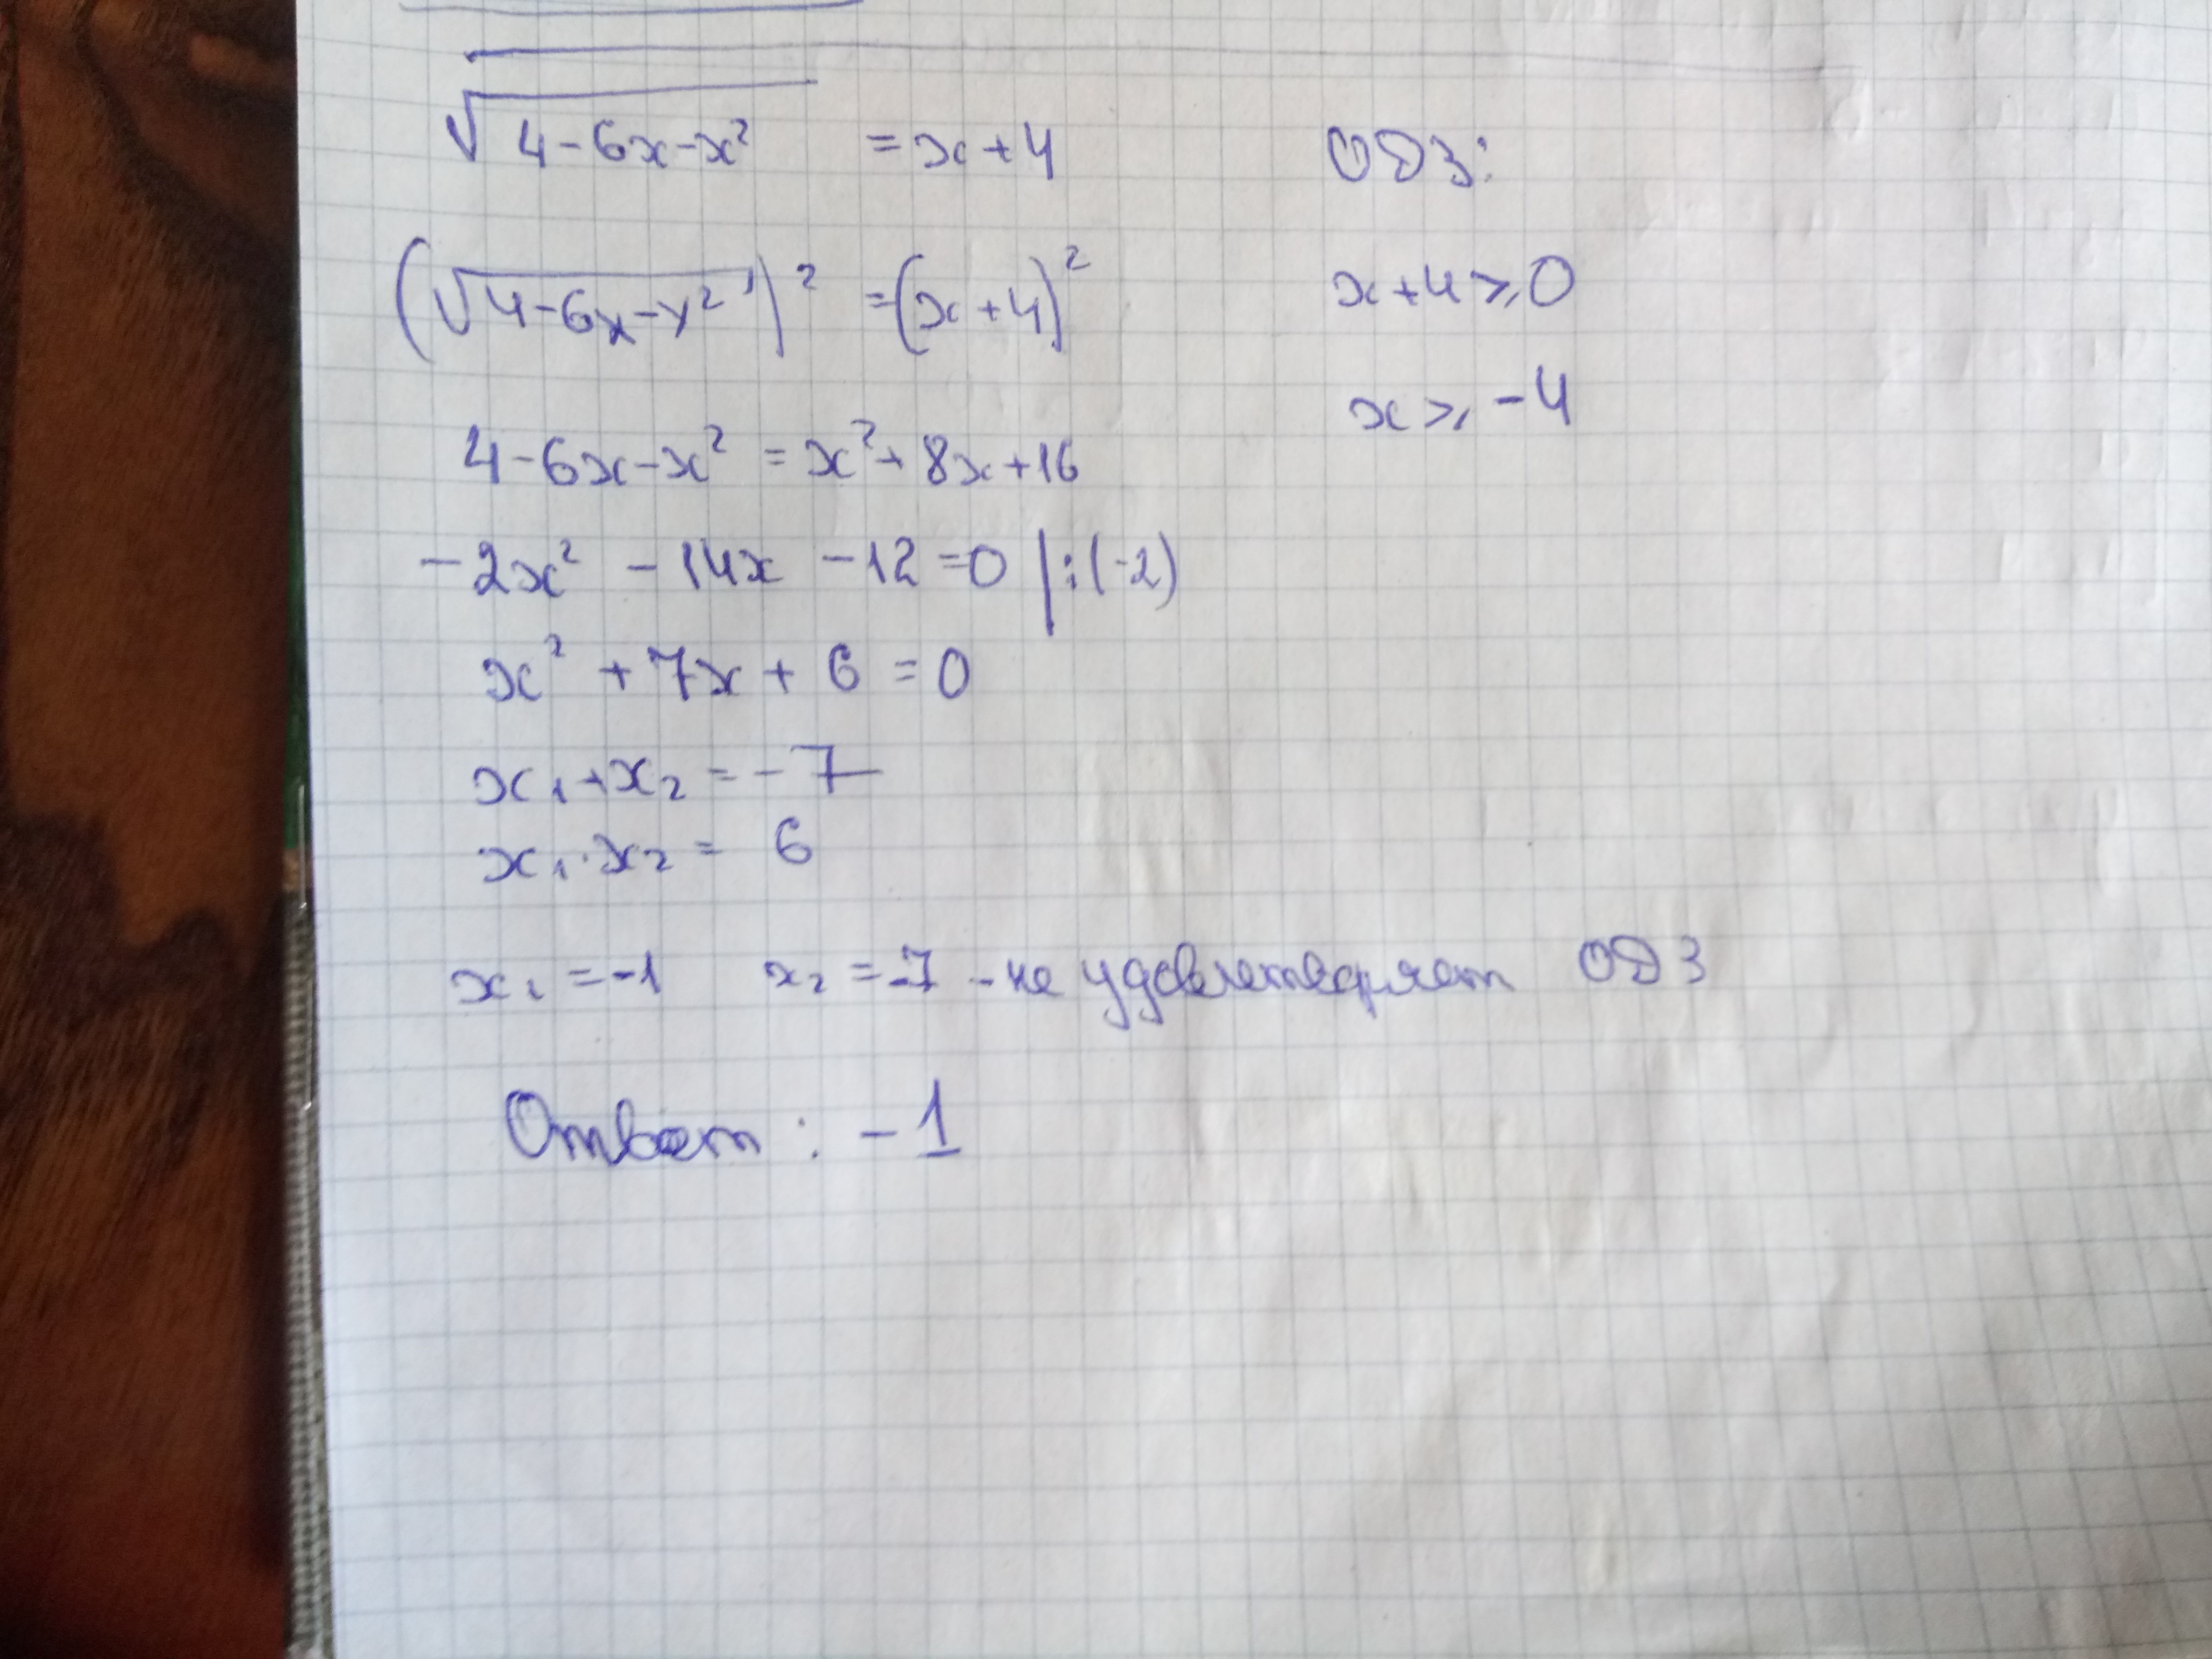 √4-6x-x² = x+4
ОДЗ:
(√4-6x-x²)² = (x+4)²
x+4⩾0
x⩾-4
4-6x-x² = x²+8x+16
-2x² -14x -12=0 |:(-2)
x² +7x+6=0
x₁+x₂=-7
x₁·x₂= 6
x₁=-1 x₂=-7 -не удовлетворяет ОДЗ
Ответ: -1